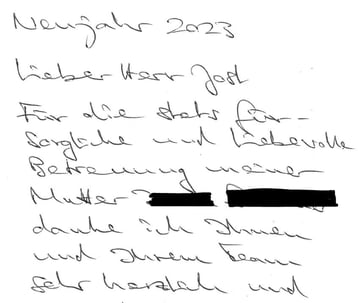 Neujahr 2023
Lieber Herr Jost
Für die stets für-
sorgliche und liebevolle
Betreuung meiner
Mutter
danke ich Ihnen
und Ihrem Team
sehr herzlich und